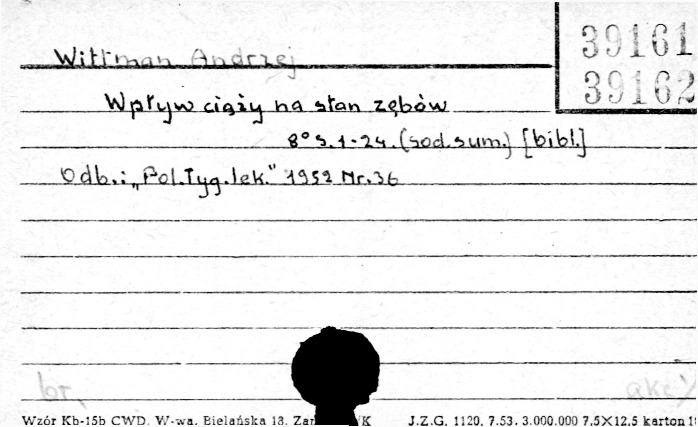 39161
39162
Wittman Andrzej
Wpływ ciąży na stan zębów
8° S. 1-24. (sod. sum.) [bibl.]
Odb.: „Pol. Tyg. lek." 1952 Nr. 36
br. akc
Wzór Kb-15b CWD. W-wa. Bielańska 18. J.Z.G. 1120. 7.53. 3.000.000 7,5×12,5 karton